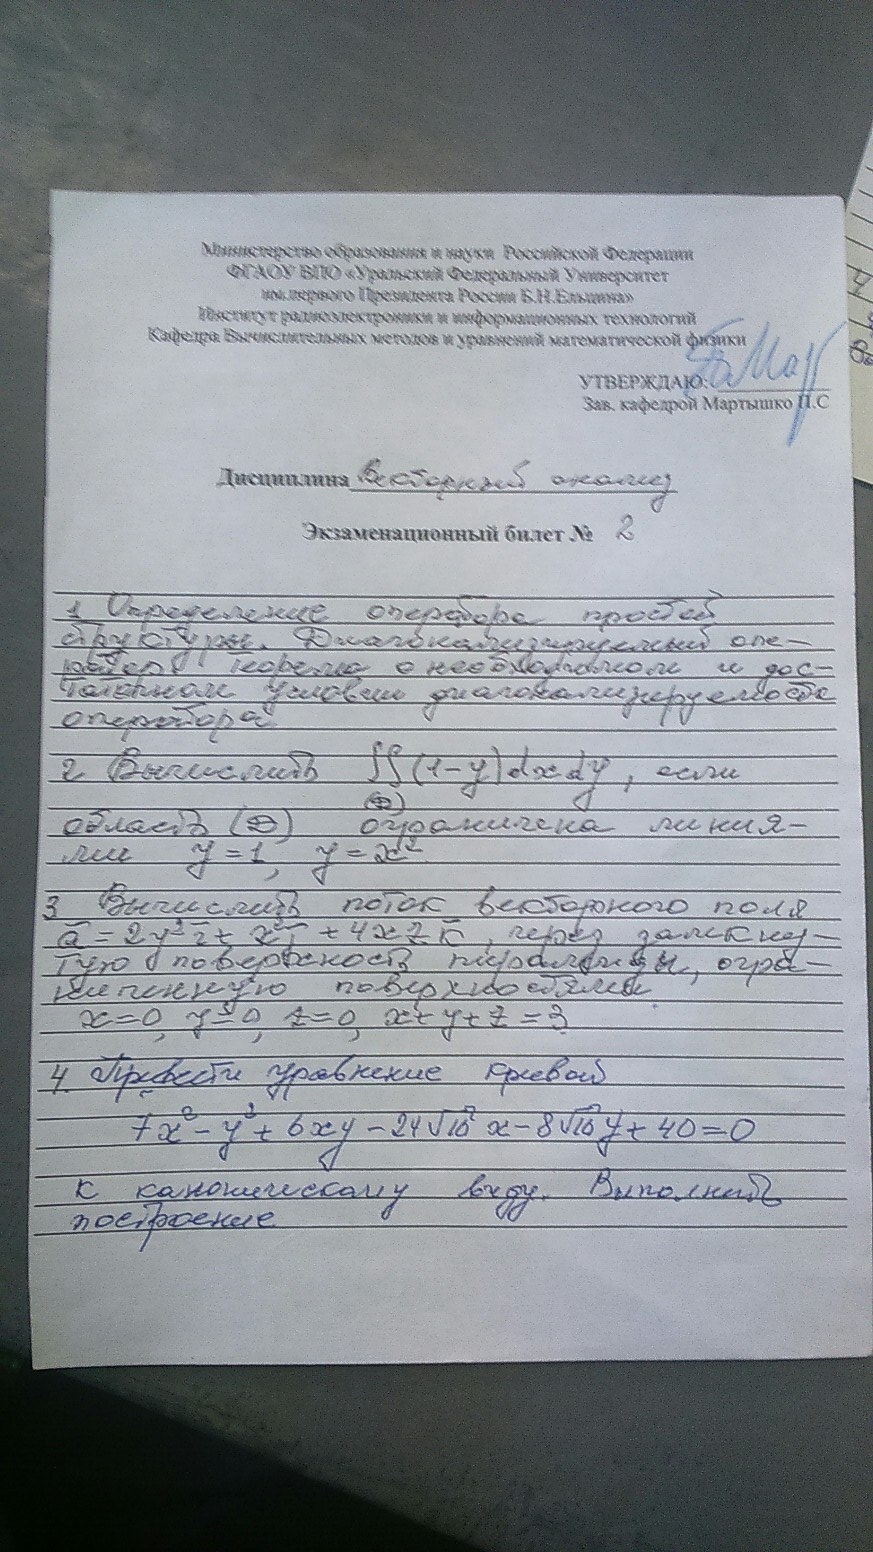 Министерство образования и науки Российской Федерации
ФГАОУ ВПО «Уральский Федеральный Университет
им.первого Президента России Б.Н.Ельцина»
Институт радиоэлектроники и информационных технологий
Кафедра Вычислительных методов и уравнений математической физики
УТВЕРЖДАЮ:
Зав. кафедрой Мартышко П.С
Дисциплина Векторный анализ
Экзаменационный билет № 2
1 Определение оператора простой
структуры. Диагонализируемый опе-
ратор, теорема о необходимом и дос-
таточном условии диагонализируемости
оператора
2 Вычислить ∬(1-y)dxdy, если
(D)
область (D) ограничена линия-
ми y=1, y=x²
3 Вычислить поток векторного поля
a̅=2y²i̅+x²j̅+4xzk̅, через замкну-
тую поверхность пирамиды, огра-
ниченную поверхностями
x=0, y=0, z=0, x+y+z=3
4. Привести уравнение кривой
7x²-y²+6xy-24√10 x-8√10y+40=0
к каноническому виду. Выполнить
построение